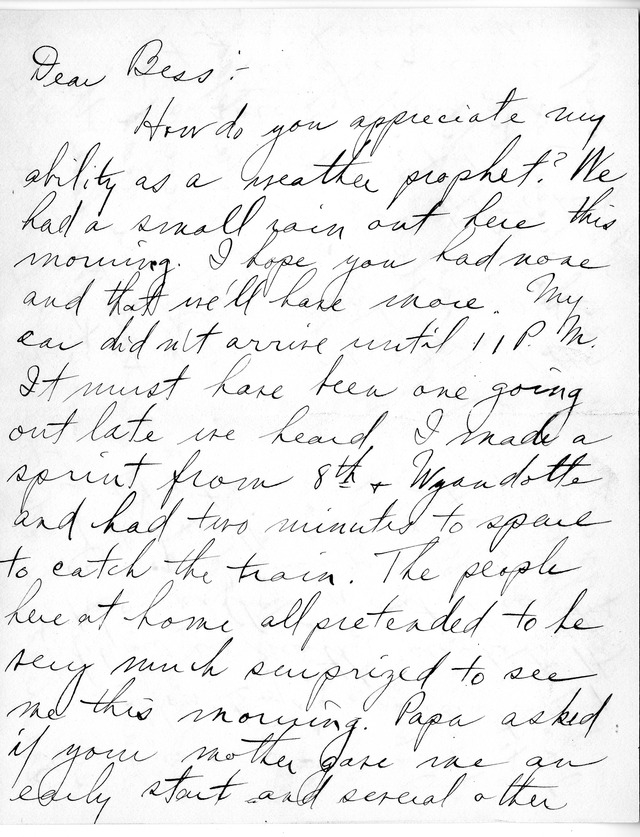 Dear Bess :-
How do you appreciate my
ability as a weather prophet? We
had a small rain out here this
morning. I hope you had none
and that we'll have more. My
car didn't arrive until 11 P.M.
It must have been one going
out late we heard. I made a
sprint from 8th + Wyandotte
and had two minutes to spare
to catch the train. The people
here at home all pretended to be
very much surprized to see
me this morning. Papa asked
if your mother gave me an
early start and several other